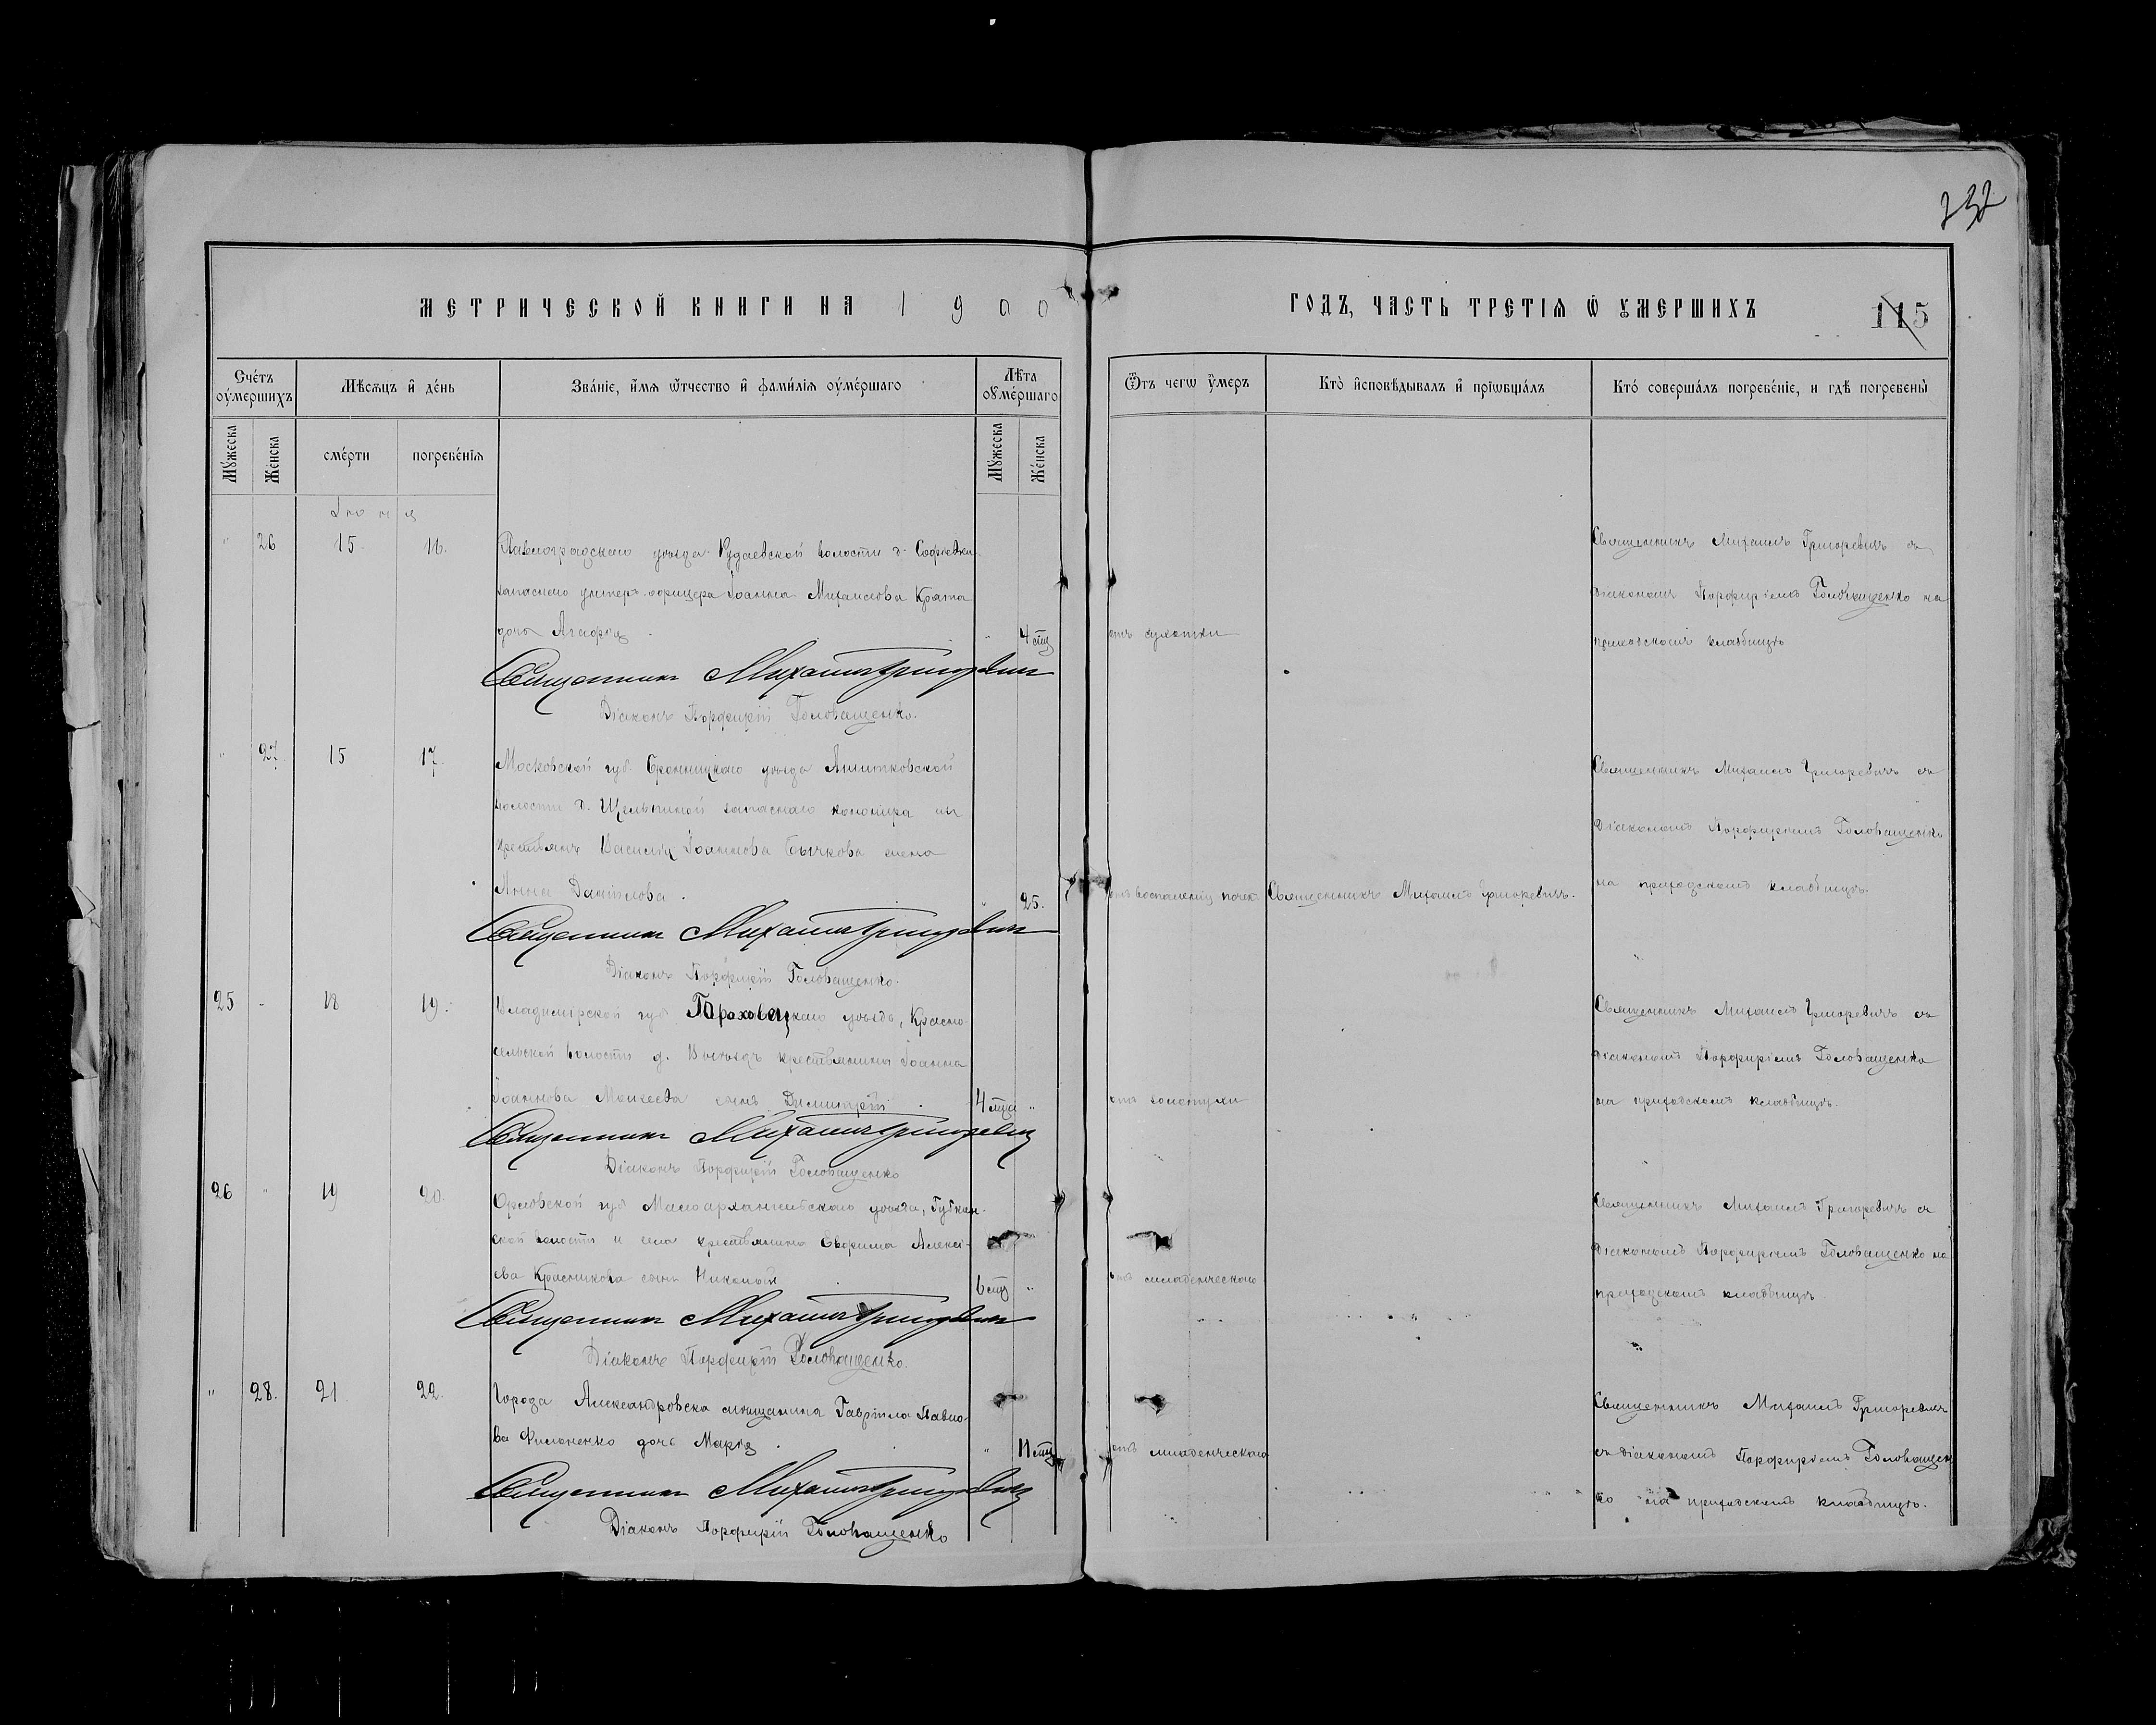 232
МЕТРИЧЕСКОЙ КНИГИ НА 1900
ГОДЪ, ЧАСТЬ ТРЕТІЯ Ѿ ꙋМЕРШИХЪ
115
Счетъ оумершихъ
Мѣсяцъ и день
Званіе, имя ѿтчество и фамилія оумершаго
Лѣта оумершаго
Ѿтъ чегѡ умеръ
Кто исповѣдывалъ и пріѡбщалъ
Кто совершалъ погребеніе, и гдѣ погребены
Мꙋжеска
Женска
смерти
погребенія
Мꙋжеска
Женска
Іюня
" 26 15. 16. Павлоградскаго уѣзда волости д. Софіевки
запаснаго унтеръ-офицера Іоанна Михаилова Крота
дочь Агафія. " 4 мца
отъ сухотки
Священникъ Михаилъ Григоревичъ съ
діакономъ Порфиріемъ Головащенко на
приходскомъ кладбищѣ
Священникъ Михаилъ Григоревичъ
Діаконъ Порфирій Головащенко.
" 27. 15 17. Московской губ. Бронницкаго уѣзда
волости д. запаснаго канонира из
крестьянъ Василія Іоаннова Бычкова жена
Анна Даніилова. " 25.
отъ воспаленія почек
Священникъ Михаилъ Григоревичъ.
Священникъ Михаилъ Григоревичъ съ
Діакономъ Порфиріемъ Головащенко
на приходскомъ кладбищѣ.
Священникъ Михаилъ Григоревичъ
Діаконъ Порфирій Головащенко.
25 " 18 19. Владимірской губ Гороховецкаго уѣзда, Красно-
сельской волости д. крестьянина Іоанна
Іоаннова Моисеева сынъ Димитрій. 4 мца "
отъ золотухи
Священникъ Михаилъ Григоревичъ съ
діакономъ Порфиріемъ Головащенко
на приходскомъ кладбищѣ.
Священникъ Михаилъ Григоревичъ
Діаконъ Порфирій Головащенко
26 " 19 20. Орловской губ Малоархангельскаго уѣзда, Губкин-
ской волости и села крестьянина Евфима Алексі-
ева Красникова сынъ Николай. 6 мца "
отъ младенческаго
Священникъ Михаилъ Григоревичъ съ
діакономъ Порфиріемъ Головащенко на
приходскомъ кладбищѣ.
Священникъ Михаилъ Григоревичъ
Діаконъ Порфирій Головащенко.
" 28. 21 22. Города Александровска мѣщанина Гавріила Павло-
ва Филоненко дочь Марія. " 11 мца
отъ младенческаго
Священникъ Михаилъ Григоревичъ
съ діакономъ Порфиріемъ Головащен
ко на приходскомъ кладбищѣ.
Священникъ Михаилъ Григоревичъ
Діаконъ Порфирій Головащенко